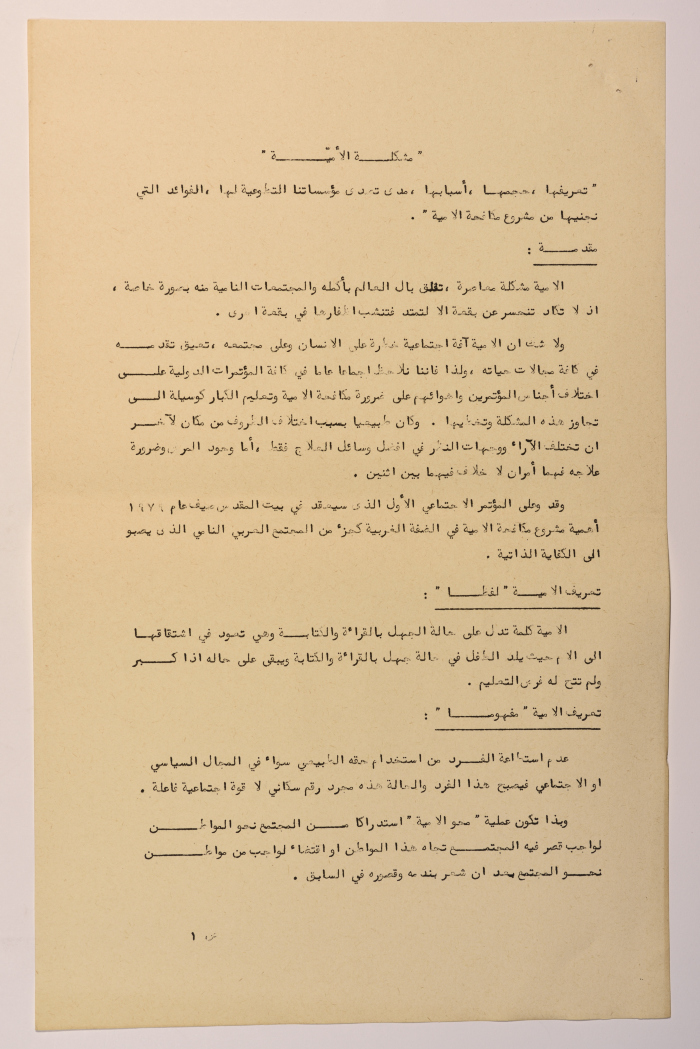 " مشكلة الأميّة "
" تعريفها ، حجمها ، أسبابها ، مدى تصدى مؤسساتنا التطوعية لها ، الفوائد التي
نجنيها من مشروع مكافحة الامية " .
مقدمة :
الامية مشكلة معاصرة ، تقلق بال العالم بأكمله والمجتمعات النامية منه بصورة خاصة ،
اذ لا تكاد تنحسر عن بقعة الا لتمتد فتنشب اظفارها في بقعة اخرى .
ولا شك ان الامية آفة اجتماعية خطرة على الانسان وعلى مجتمعه ، تعيق تقدمه
في كافة مجالات حياته ، ولذا فاننا نلاحظ اجماعا عاما في كافة المؤتمرات الدولية على
اختلاف أجناس المؤتمرين واهوائهم على ضرورة مكافحة الامية وتعليم الكبار كوسيلة الى
تجاوز هذه المشكلة وتخطيها . وكان طبيعيا بسبب اختلاف الظروف من مكان لآخر
ان تختلف الآراء ووجهات النظر في افضل وسائل العلاج فقط ، أما وجود المرض وضرورة
علاجه فهما أمران لا خلاف فيهما بين اثنين .
وقد وعلى المؤتمر الاجتماعي الأول الذى سيعقد في بيت المقدس صيف عام ١٩٧٩
أهمية مشروع مكافحة الامية في الضفة الغربية كجزء من المجتمع العربي النامي الذى يصبو
الى الكفاية الذاتية .
تعريف الامية " لفظا " :
الامية كلمة تدل على حالة الجهل بالقراءة والكتابة وهي تعود في اشتقاقها
الى الام حيث يلد الطفل في حالة جهل بالقراءة والكتابة ويبقى على حاله اذا كبر
ولم تتح له فرص التعليم .
تعريف الامية " مفهوما " :
عدم استطاعة الفرد من استخدام حقه الطبيعي سواء في المجال السياسي
او الاجتماعي فيصبح هذا الفرد والحالة هذه مجرد رقم سكاني لا قوة اجتماعية فاعلة .
وبذا تكون عملية " محو الامية " استدراكا من المجتمع نحو المواطن
لواجب قصر فيه المجتمع تجاه هذا المواطن او اقتضاء لواجب من مواطن
نحو المجتمع بعد ان شعر بندمه وقصوره في السابق .
١